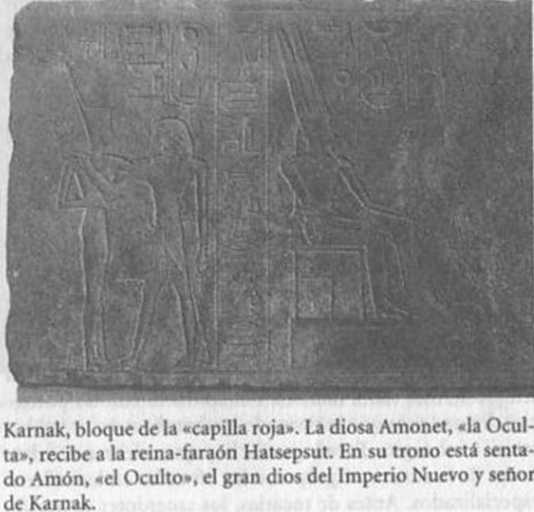 Karnak, bloque de la «capilla roja». La diosa Amonet, «la Ocul-
ta», recibe a la reina-faraón Hatsepsut. En su trono está senta-
do Amón, «el Oculto», el gran dios del Imperio Nuevo y señor
de Karnak.